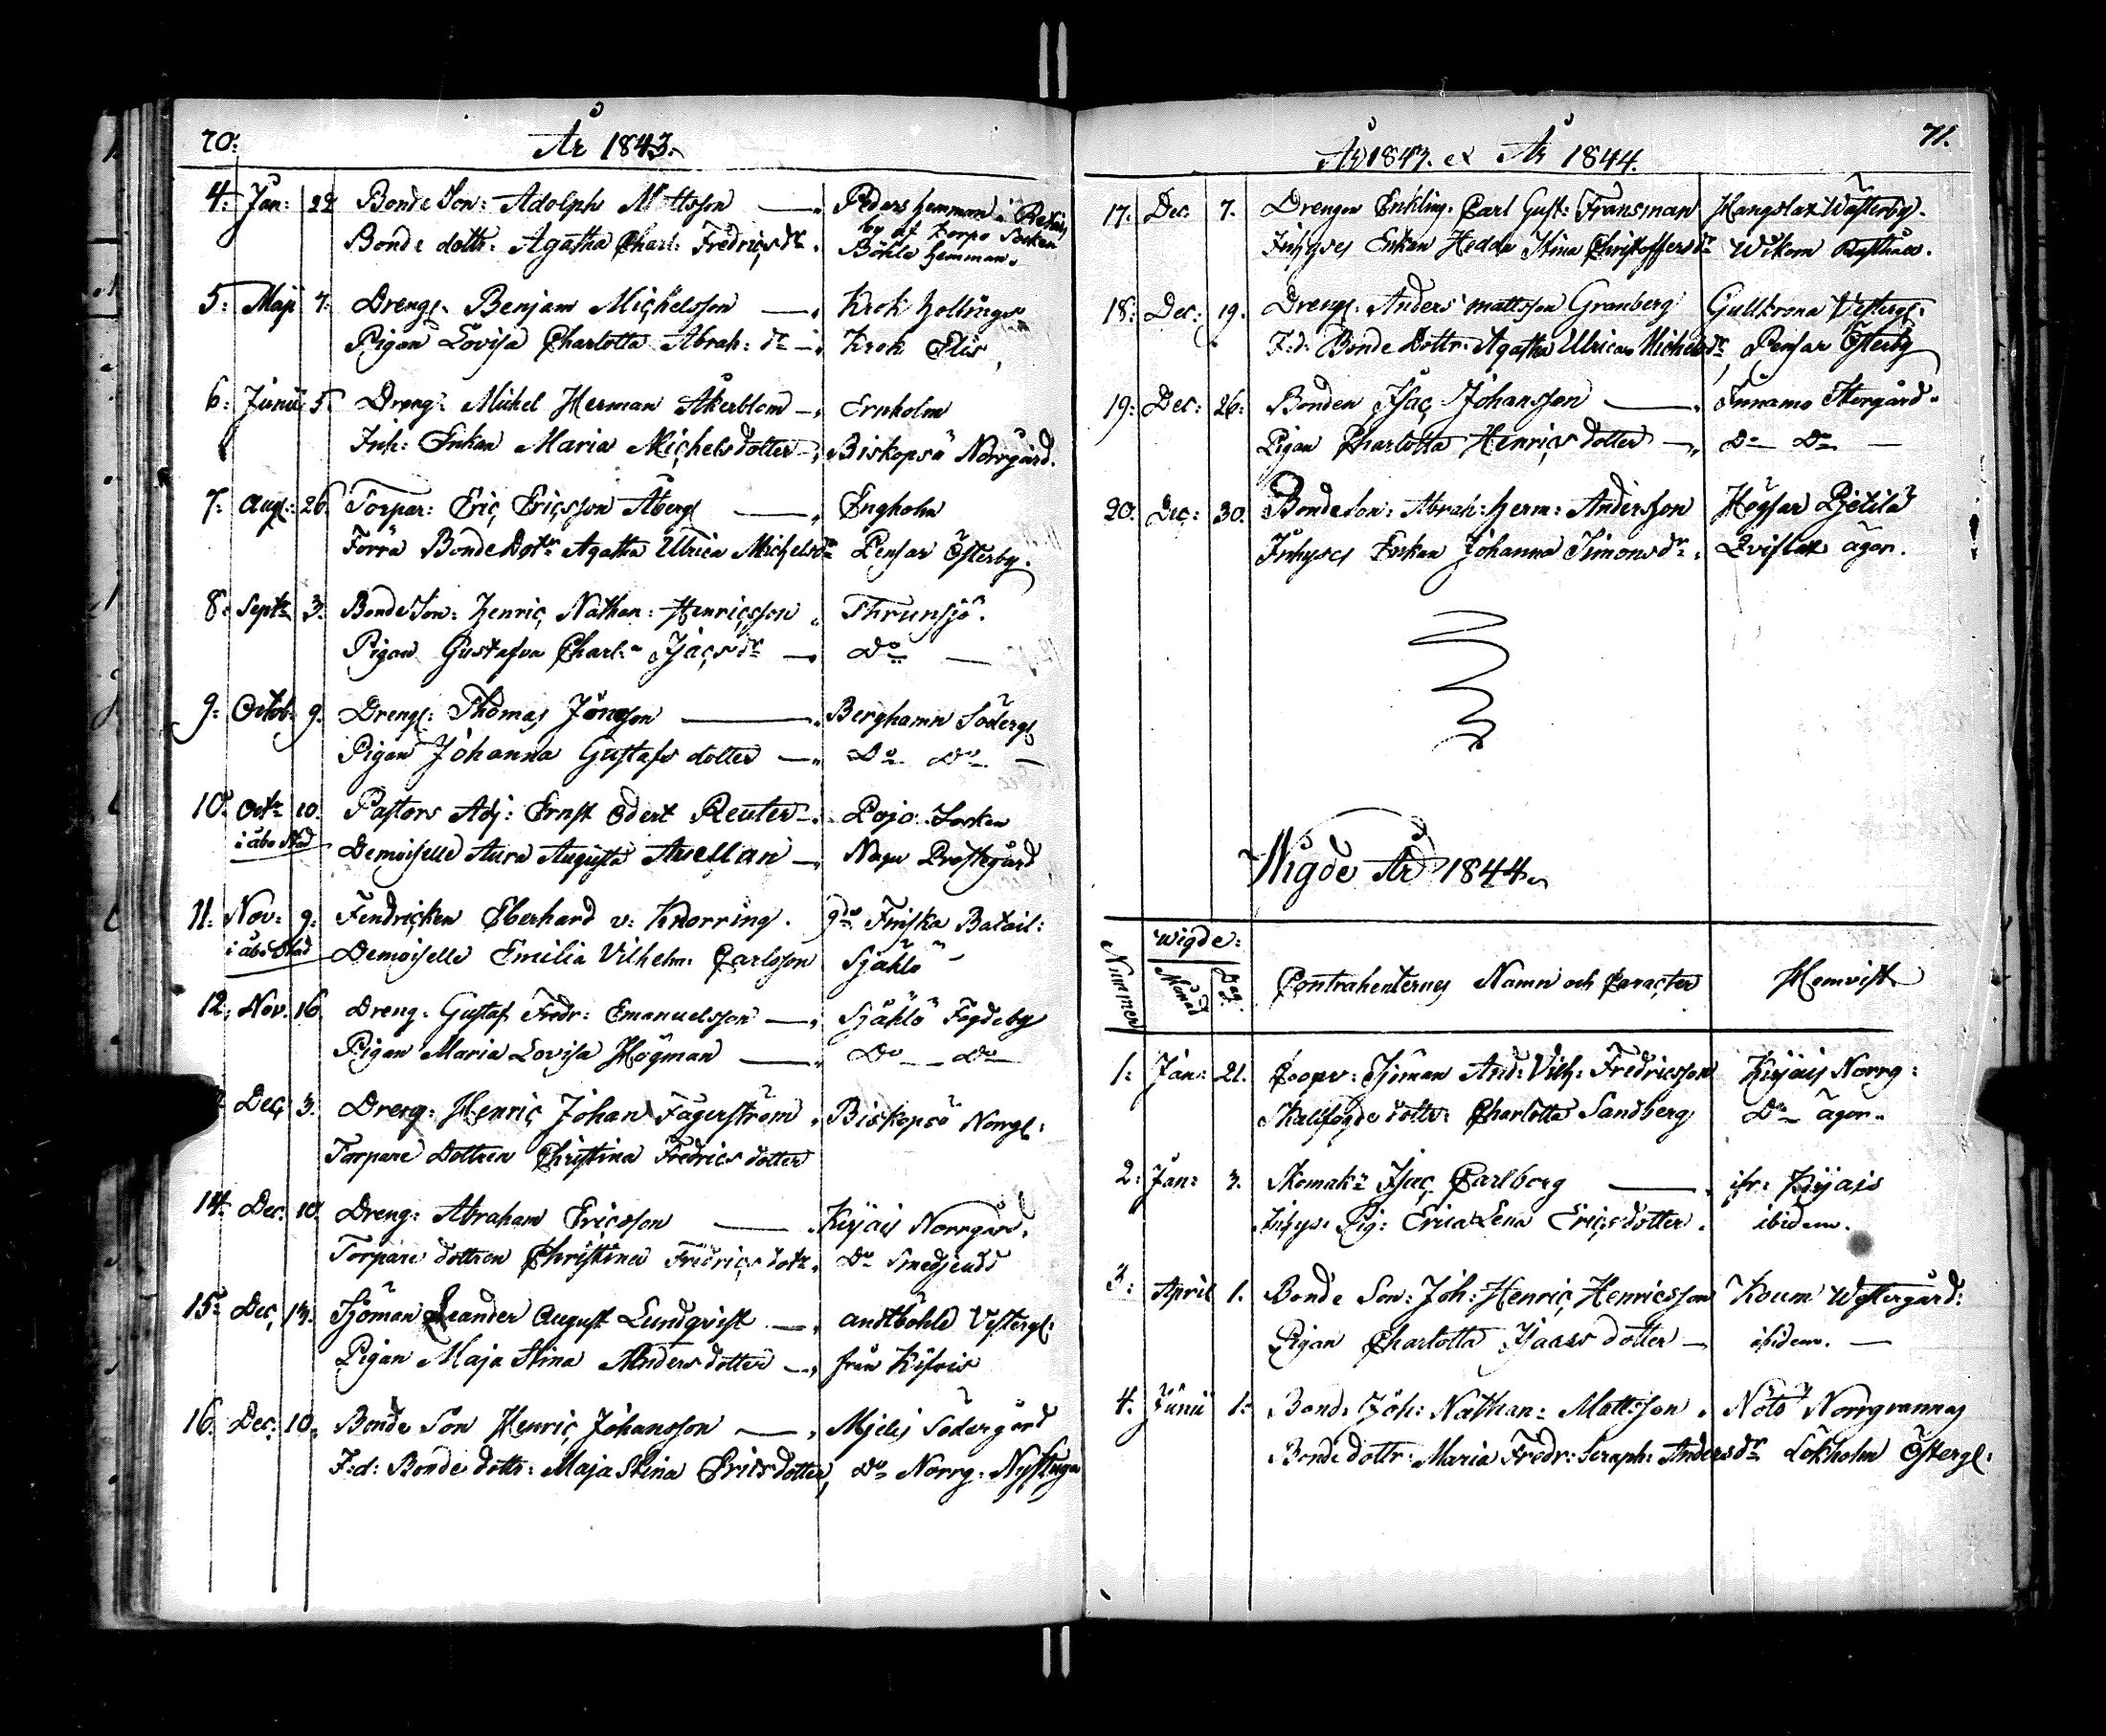 70.
År 1843.
4. Jan: 22 Bonde Son: Adolph Mattsson Peders hemman i
by af Korpo Socken
Bonde dottr. Agatha Charl: Fredricsdr Böhle hemman.
5: Maji 7. Drengl. Benjam Michelsson Krok
Pigan Lovisa Charlotta Abrah: dr Krok Elis
6: Junii 5. Drengl. Michel Herman Åkerblom Ernholm
Inh: Enkan Maria Michelsdotter Biskopsö Norrgård.
7: Aug: 26. Torpar: Eric Ericsson Åberg Engholm
Förra Bonde Dottr Agatha Ulrica Michelsdr Pensar Österby.
8: Septr 3. Bonde Son: Henric Nathan: Henricsson Thrunsjö.
Pigan Gustafva Charl: Isacsdr Do
9: Octob: 9. Drengl: Thomas Jönsson Berghamn Södergl
Pigan Johanna Gustafs dotter Do Do
10. Octr 10. Pastors Adj: Ernst Edert Reuter Pojo Socken
i åbo Stad Demoiselle Aura Augusta Avellan Nagu Prestegård
11. Nov: 9: Fendricken Eberhard v: Knorring. gde Finska Batail:
i åbo Stad Demoiselle Emilia Vilhelm: Carlsson Själö
12. Nov. 16 Dreng: Gustaf Fredr: Emanuelsson Själö Fogdeby
Pigan Maria Lovisa Högman Do Do
Dec 3. Dreng: Henric Johan Fagerström Biskopsö Norrgl:
Torpare Dottren Christina Fredrics dotter
14. Dec. 10. Dreng: Abraham Ericsson Kirjais Norrgård.
Torpare dottren Christina Fredrics dottr. Do
15. Dec. 13. Sjöman Leander August Lundqvist Vestergl:
Pigan Maja Stina Anders dotter från
16. Dec: 10. Bonde Son Henric Johansson Mielis Södergård
F:d: Bonde dottr: Maja Stina Erics dotter, Do Norrg: Nystuga
71.
År 1843. et År 1844.
17: Dec: 7. Drengen Enkling. Carl Gust: Fransman Hangslax Westerby.
Inhyses Enkan Hedda Stina Christoffersdr Wikom
18: Dec: 19. Drengl. Anders Mattsson Granberg Gullkrona Vestergl.
F:d: Bonde Dottr. Agatha Ulrica Michelsdr Pensar Österby
19: Dec: 26: Bonden Isac Johansson Innamo Storgård.
Pigan Charlotta Henrics dotter Do Do
20. Dec: 30. Bonde Son: Abrah: Herm: Andersson Högsar Pjetilä
Inhyses Enkan Johanna Simonsdr: Qvislax ägor.
Wigde År 1844.
Nummer
wigde:
Månad
Dag.
Contrahenternes Namn och Caracter
Hemvist
1: Jan: 21. Coopv: Sjöman And: Vilh: Fredricsson Kirjais Norrg:
Skallfogde dottr: Charlotta Sandberg Do ägor.
2: Jan: 3. Skomakr Isac Carlberg ifr: Kirjais
Inhys: Pig: Erica Lena Ericsdotter. ibidem.
3: April 1. Bonde Son: Joh: Henric Henricsson Koum Westergård:
Pigan Charlotta Isaacs dotter ibidem.
4. Junii 1: Bond: Joh: Nathan: Mattsson Nötö Norrgrannas
Bonde dottr: Maria Fredr: Seraph: Andersdr Lökholm Östergl: